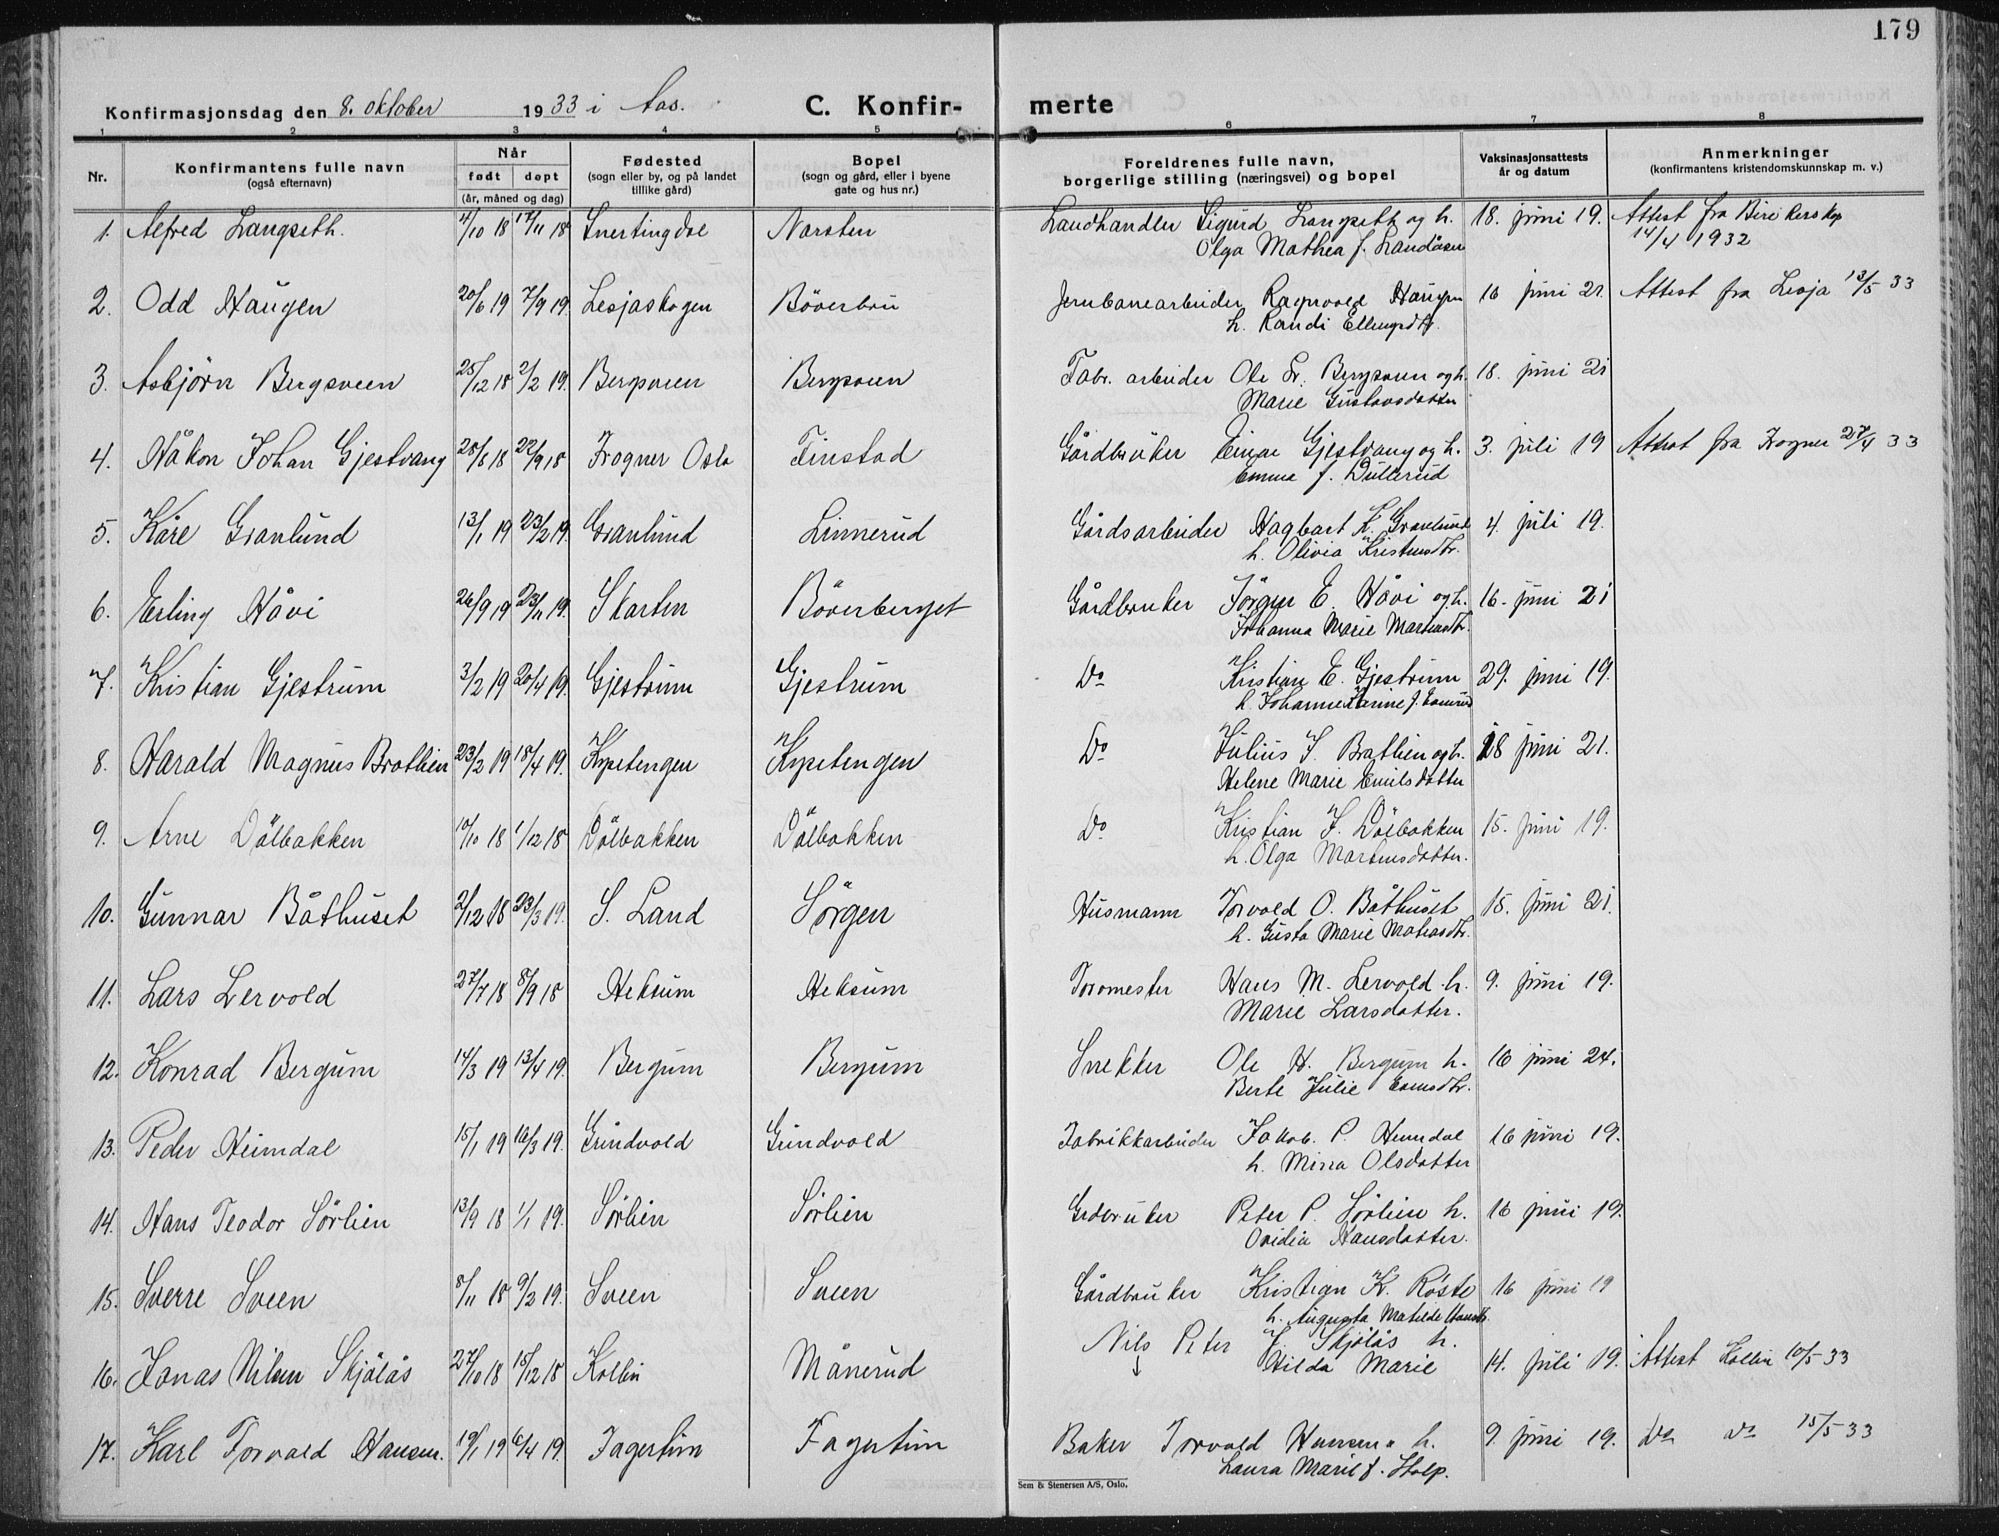 179
Konfirmasjonsdag den 8. oktober 1933 i Aas. C. Konfirmerte
1 2 3 4 5 6 7 8
Nr. Konfirmantens fulle navn (også efternavn) Når født døpt (år, måned og dag) Fødested (sogn eller by, og på landet tillike gård) Bopel (sogn og gård, eller i byene gate og hus nr.) Foreldrenes fulle navn, borgerlige stilling (næringsvei) og bopel Vaksinasjonsattests år og datum Anmerkninger (konfirmantens kristendomskunnskap m. v.)
1. Alfred Langseth. 4/10 18 17/11 18 Snertingdal Narsten Landhandler Sigurd Langseth og h. 18. juni 19. Attest fra Biri
Olga Mathea f. Landåsen 14/4 1932
2. Odd Haugen 20/6 19 7/9 19. Lesjaskogen Böverbru Jernbanearbeider Ragnvald Haugen 16 juni 21. Attest fra Lesja 13/5 33
h. Randi
3. Asbjörn Bergsveen 25/12 18 2/2 19. Bergsveen Bergsveen Fabr. arbeider Ole Bergsveen og h. 18. juni 21
Marie Gustavsdatter
4. Håkon Johan Gjestvang 28/8 18 22/9 18 Frogner Oslo Finstad Gårdbruker Einar Gjestvang og h. 3. juli 19 Attest fra Frogner 27/4 33
Emma f. Dullerud
5. Kåre Granlund 13/1 19 23/2 19. Granlund Linnerud Gårdsarbeider Hagbart Granlund 4. juli 19.
h. Olivia Kristensdtr.
6. Erling Håvi 26/9 19 23/11 19. Skarten Böverberget Gårdbruker Jörgen E. Håvi og h. 16. juni 21
Johanna Marie
7. Kristian Gjestrum 3/2 19 20/4 19. Gjestrum Gjestrum Do Kristian E. Gjestrum 29. juni 19.
h. Johanne Karine f.
8. Harald Magnus Brathien 23/2 19 18/4 19. Kysetengen Kysetengen Do Julius J. Brathien og h. 18 juni 21.
Helene Marie Emilsdatter
9. Arne Dålbakken 10/10 18 1/12 18 Dålbakken Dålbakken Do Kristian J. Dålbakken 15. juni 19.
h. Olga Martinsdatter.
10. Gunnar Båthuset 2/12 18 23/3 19. S. Land Sörgen Husmann Torvald O. Båthuset 15. juni 21.
h. Gusta Marie Matiasdtr.
11. Lars Lervold 27/7 18 8/9 18 Heksum Heksum Toromester Hans M. Lervold h. 9. juni 19.
Marie Larsdatter.
12. Konrad Bergum 14/3 19 13/4 19. Bergum Bergum Snekker Ole H. Bergum h. 16 juni 24.
Berte Julie
13. Peder Heimdal 15/1 19 16/3 19. Grindvold Grindvold Fabrikkarbeider Jakob. P. Heimdal 16 juni 19.
h. Mina Olsdatter
14. Hans Teodor Sörlien 13/9 18 1/1 19. Sörlien Sörlien Grdbruker Peter P. Sörlien h. 16 juni 19.
Ovidia Hansdatter.
15. Sverre Sveen 8/11 18 9/2 19. Sveen Sveen Gårdbruker Kristian K. Röste 16 juni 19
h. Augusta Matilde
16. Jonas Nilsen Skjölås 27/10 18 15/12 18 Kolbu Månerud Nils Peter J. Skjölås h.
Hilda Marie 14. juli 19. Attest Kolbu 10/5 33
17. Karl Torvald Hansen. 19/1 19 6/4 19. Fagertun Fagertun Baker Torvald Hansen h. 9. juni 19. Do Do 15/5 33
Laura Marie f. Stolp.
Sem & Stenersen A/S, Oslo.